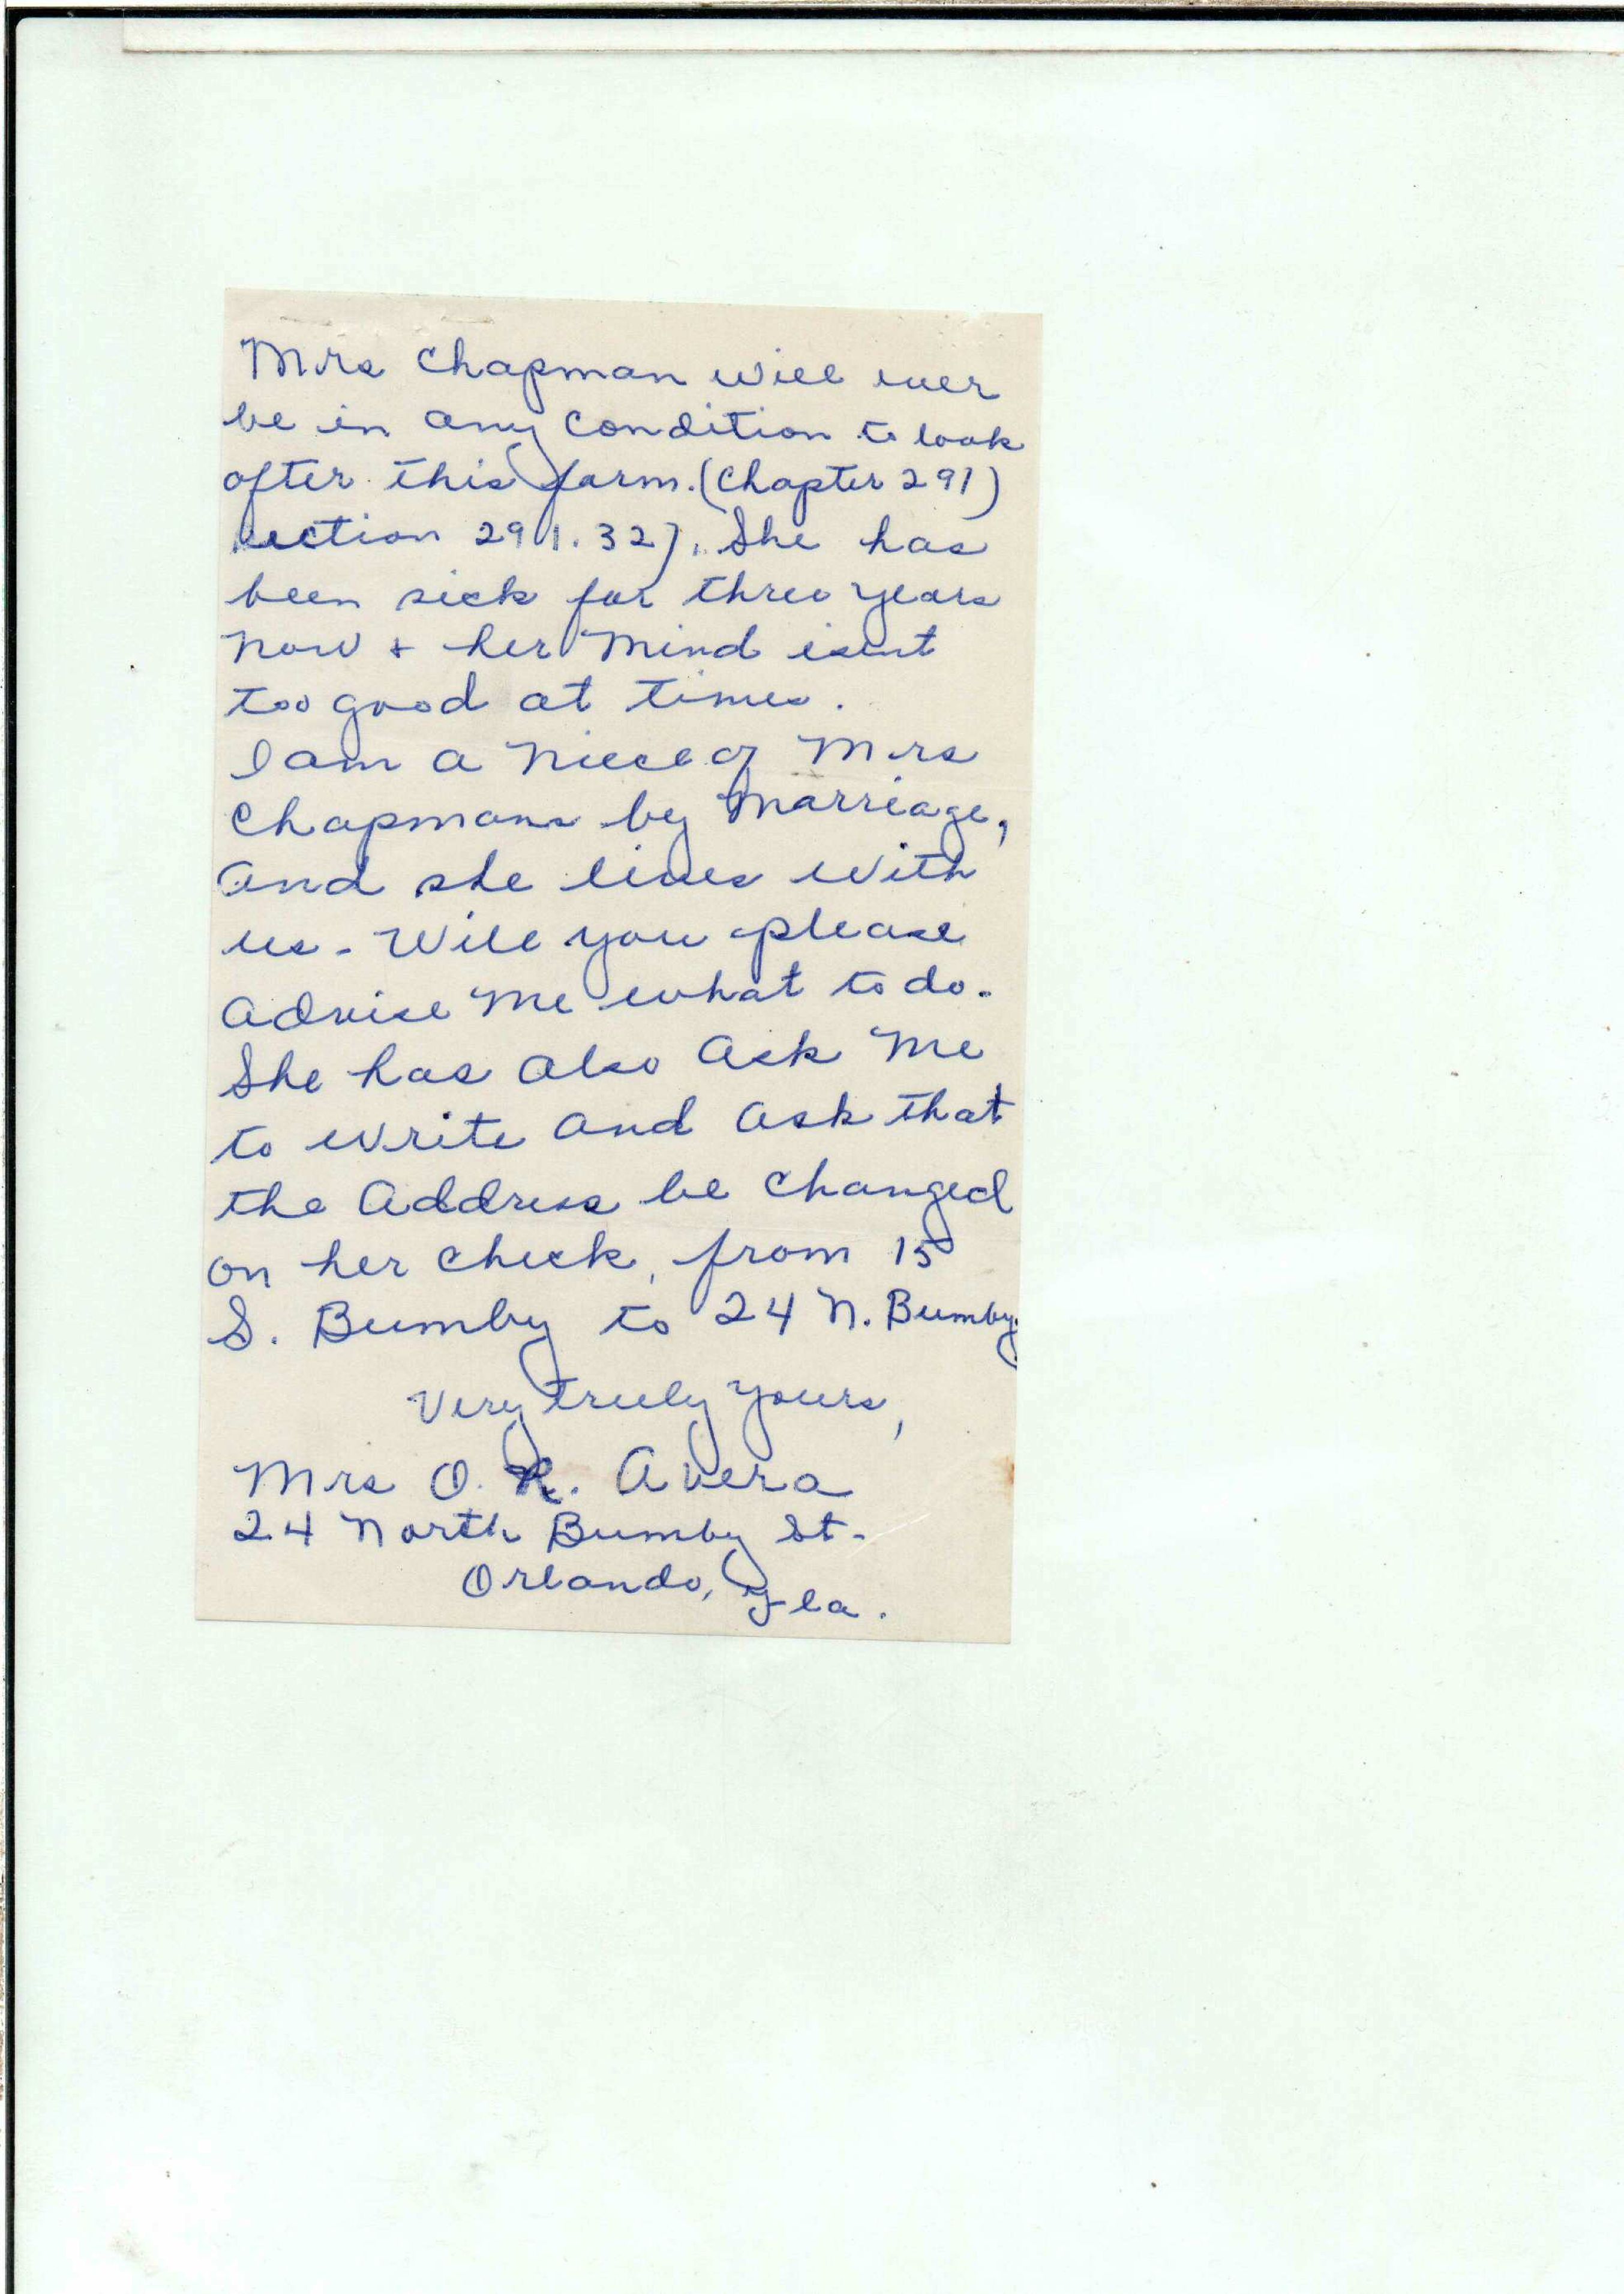 Mrs Chapman will ever
be in any condition to look
after this farm. (Chapter 291)
section 291.32). She has
been sick for three years
now + her mind isent
too good at times.
I am a niece of Mrs
Chapmans by marriage,
and she lives with
us. Will you please
advise me what to do.
She has also ask me
to write and ask that
the address be changed
on her check, from 15
S. Bumby to 24 N. Bumby.
Very truly yours,
Mrs O. R. Avera
24 North Bumby St.
Orlando, Fla.